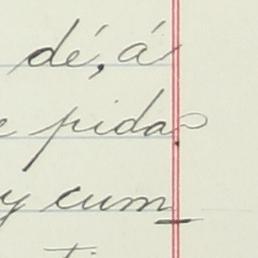 dé, á
e pidas
y cum_